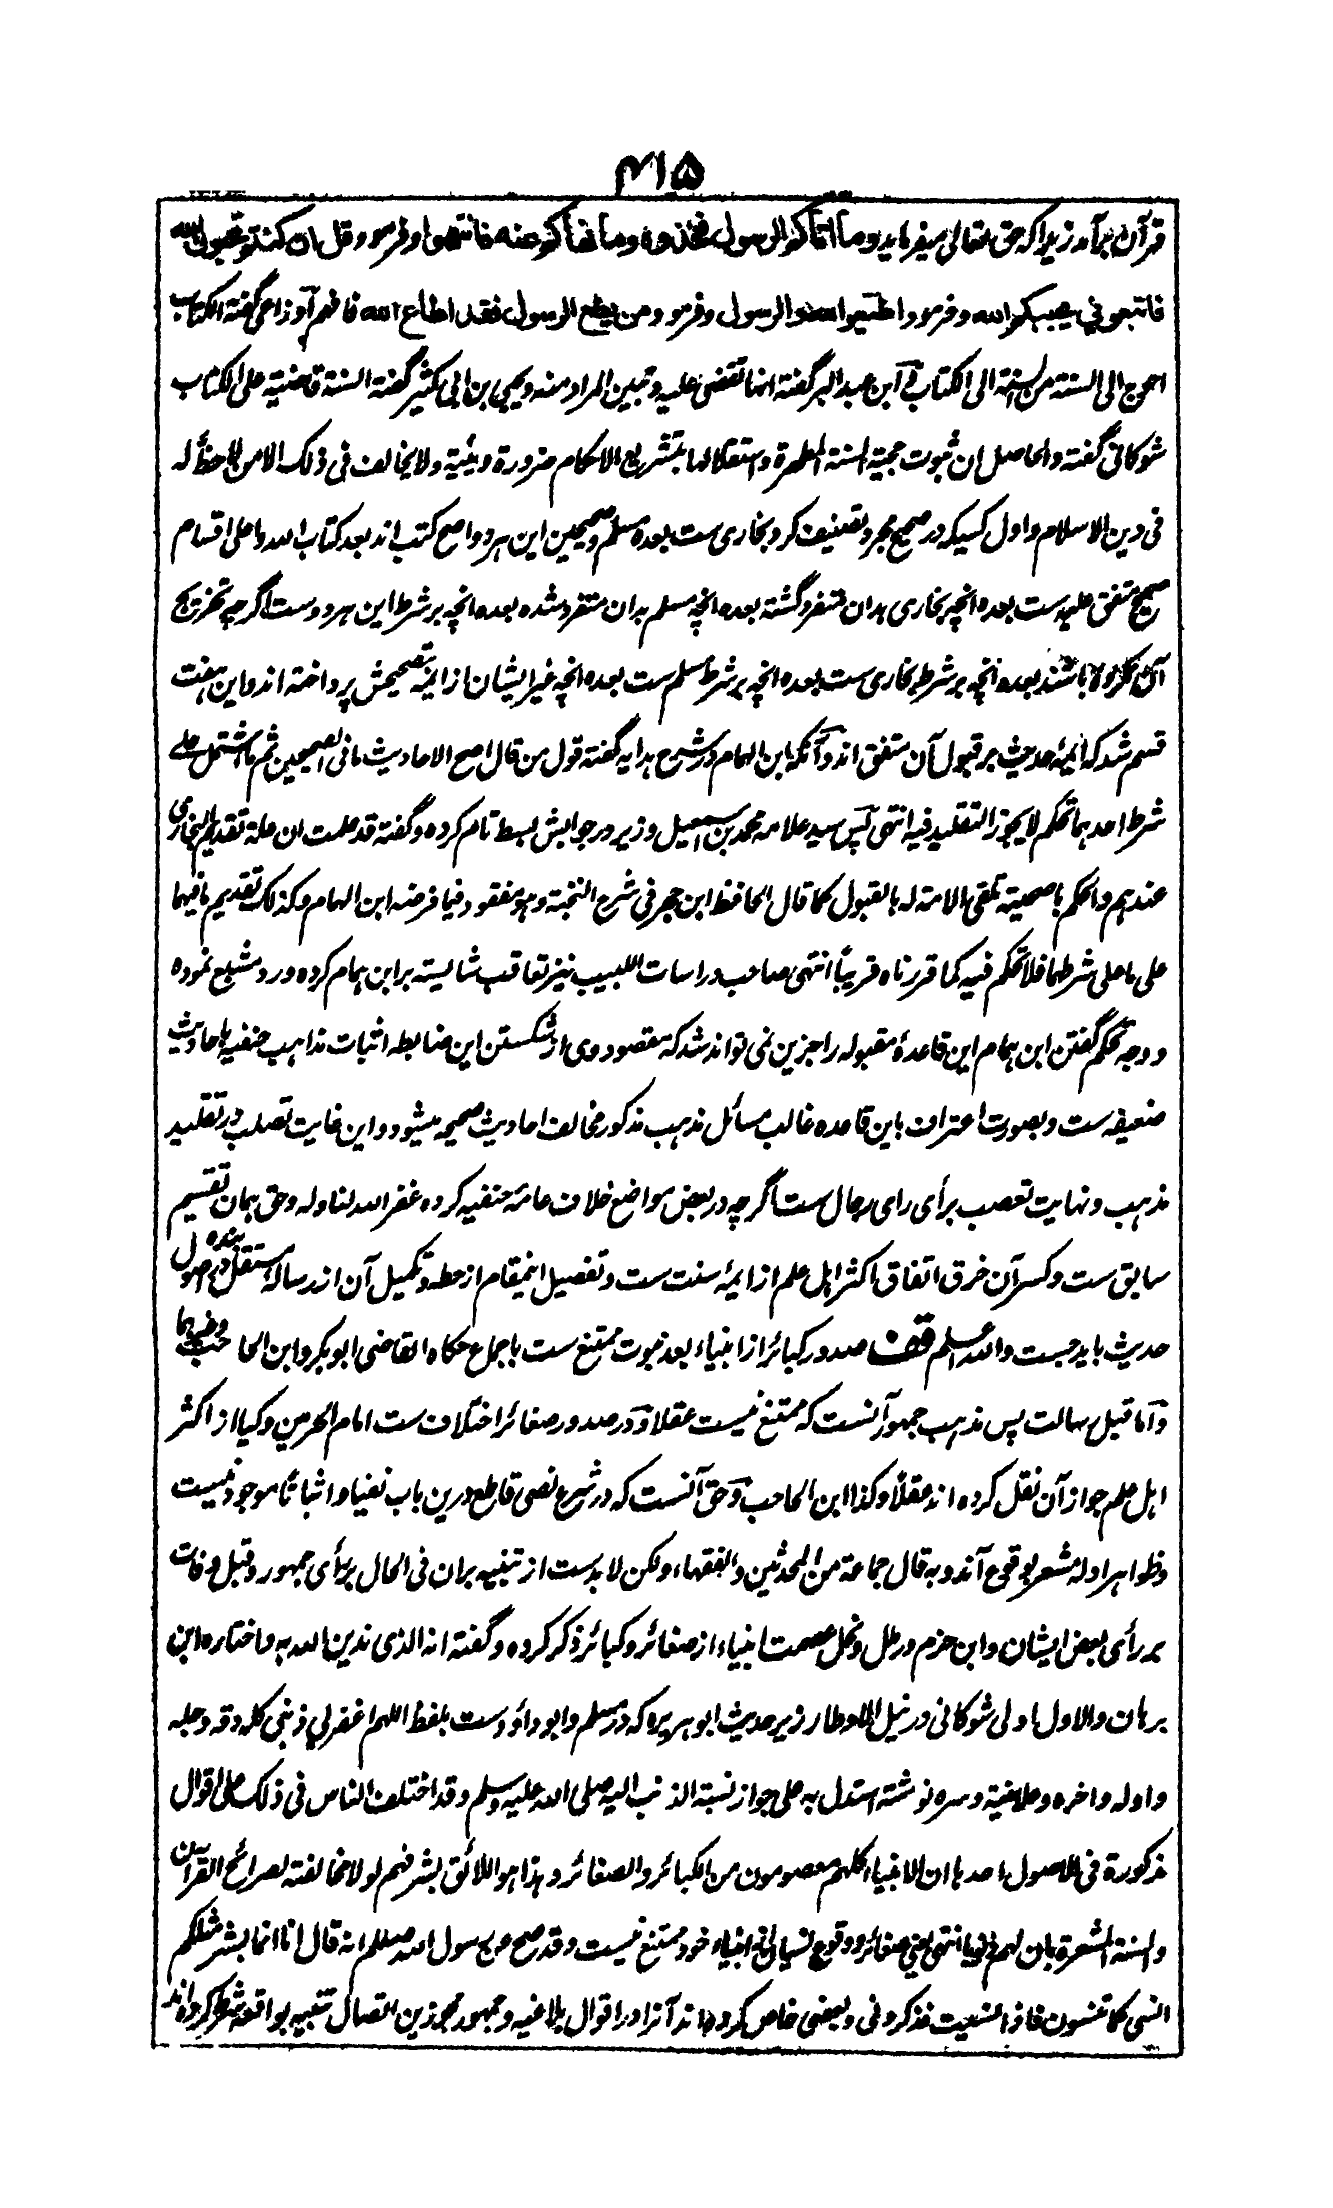 ۴۱۵
قرآن برآمد زیرا که حق تعالی میفرماید وما اتاکم الرسول فخذوه وما نهاکم عنه فانتهوا و فرمود قل ان کنتم تحبون الله
فاتبعونی یحببکم الله و فرمود اطیعوا الله والرسول و فرمود ومن یطع الرسول فقد اطاع الله فافهم اوزاعی گفته الکتاب
احوج الی السنة من السنة الی الکتاب ابن عبد البر گفته انها تقضی علیه و تبین المراد منه و یحیی بن ابی کثیر گفته السنة قاضیة علی الکتاب
شوکانی گفته والحاصل ان ثبوت حجیة السنة المطهرة واستقلالها بتشریع الاحکام ضرورة دینیة ولا یخالف فی ذلک الا من لا حظ له
فی دین الاسلام و اول کسیکه در صحیح مجرد تصنیف کرد بخاری ست بعده مسلم و صحیحین این هر دو اصح کتب اند بعد کتاب الله و اعلی اقسام
صحیح متفق علیه ست بعده انچه بخاری بدان متفرد گشته بعده انچه مسلم بدان متفرد شده بعده انچه بر شرط این هر دو ست اگرچه تخریج
آن نکرده باشند بعده انچه بر شرط بخاری ست بعده انچه بر شرط مسلم ست بعده انچه غیر ایشان از ایمه تصحیحش پرداخته اند و این هفت
قسم شد که ایمه حدیث بر قبول آن متفق اند و آنکه ابن الهمام در شرح هدایه گفته قول من قال اصح الاحادیث ما فی الصحیحین ثم ما اشتمل علی
شرط احدهما تحکم لا یجوز التقلید فیه انتهی پس سید علامه محمد بن اسمعیل وزیر در جوابش بسط تام کرده و گفته قد علمت ان علة تقدیم البخاری
عندهم والحکم باصحیته تلقی الامة له بالقبول کما قال الحافظ ابن حجر فی شرح النخبة وهو مفقود فیما فرضه ابن الهمام وکذلک تقدیم ما فیهما
علی ما علی شرطهما فلا تحکم فیه کما قررناه قریباً انتهی صاحب دراسات اللبیب نیز تعاقب شایسته بر ابن همام کرده و رد مشبع نموده
و وجه تحکم گفتن ابن همام این قاعدهٔ مقبوله را جزین نمی تواند شد که مقصود وی از شکستن این ضابطه اثبات مذاهب حنفیه باحادیث
ضعیفه ست و بصورت اعتراف باین قاعده غالب مسائل مذهب مذکور مخالف احادیث صحیحه میشود و این غایت تصلب در تقلید
مذهب و نهایت تعصب برأی رای رجال ست اگرچه در بعض مواضع خلاف عامهٔ حنفیه کرده غفر الله لنا وله و حق همان تقسیم
سابق ست و کسر آن خرق اتفاق اکثر اهل علم از ایمهٔ سنت ست و تفصیل اینمقام از حطه و تکمیل آن از رسالهٔ مستقل بنده در اصول
حدیث باید جست والله اعلم قف صدور کبائر از انبیاء بعد نبوت ممتنع ست باجماع حکاه القاضی ابو بکر وابن الحاجب وغیرهما
و اما قبل رسالت پس مذهب جمهور آنست که ممتنع نیست عقلا و در صدور صغائر اختلاف ست امام الحرمین و کیا از اکثر
اهل علم جواز آن نقل کرده اند عقلاً وکذا ابن الحاجب و حق آنست که در شرع نصی قاطع درین باب نفیا و اثباتاً موجود نیست
و ظواهر ادله مشعر بوقوع آنند وبه قال جماعة من المحدثین والفقهاء ولکن لابد ست از تنبیه بران فی الحال برأی جمهور و قبل وفات
بر رأی بعض ایشان و ابن حزم در ملل و نحل عصمت انبیاء از صغائر و کبائر ذکر کرده و گفته انه الذی ندین الله به واختاره ابن
برهان والاول اولی شوکانی در نیل الاوطار زیر حدیث ابو هریره که در مسلم و ابو داؤد ست بلفظ اللهم اغفر لی ذنبی کله دقه وجله
واوله واخره وعلانیته وسره نوشته استدل به علی جواز نسبة الذنب الیه صلی الله علیه وسلم وقد اختلف الناس فی ذلک علی اقوال
مذکورة فی الاصول احدها ان الانبیاء کلهم معصومون من الکبائر والصغائر وهذا هو اللائق بشرفهم لولا مخالفته لصرائح القرآن
والسنة المشعرة بان لهم ذنوبا انتهی یعنی صغائر و وقوع نسیان از انبیاء خود ممتنع نیست وقد صح عن رسول الله صلعم انه قال انا انما بشر مثلکم
انسی کما تنسون فاذا نسیت فذکرونی و بعضی خاص کرده اند آنرا در اقوال بلاغیه و جمهور مجوزین اتصال تنبیه بواقعه شرط کرده اند